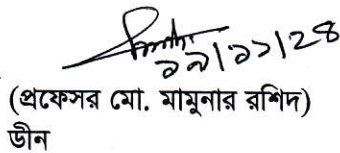 ২৯|১১|২৪
(প্রফেসর মো. মামুনার রশিদ)
ডীন